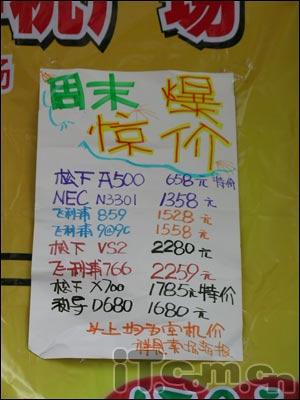 机 场
场
周末 爆
惊价
松下 A500 658元 特价
NEC N3301 1358元
飞利浦 859 1528元
飞利浦 9@9c 1558元
松下 VS2 2280元
飞利浦766 2259元
松下 X700 1785元特价
D680 1680元
以上均为空机价
iT.com.cn